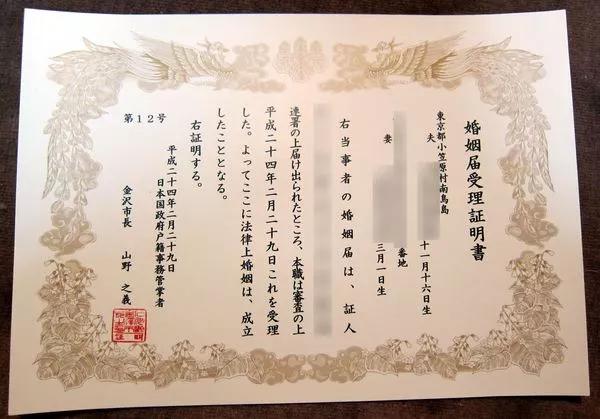 婚姻届受理証明書
東京都小笠原村南鳥島
夫 十一月十六日生
番地
妻 三月一日生
右当事者の婚姻届は、証人
連署の上届け出られたところ、本職は審査の上
平成二十四年二月二十九日これを受理
した。よってここに法律上婚姻は、成立
したこととなる。
右証明する。
第12号
平成二十四年二月二十九日
日本国政府戸籍事務管掌者
金沢市長 山野 之義